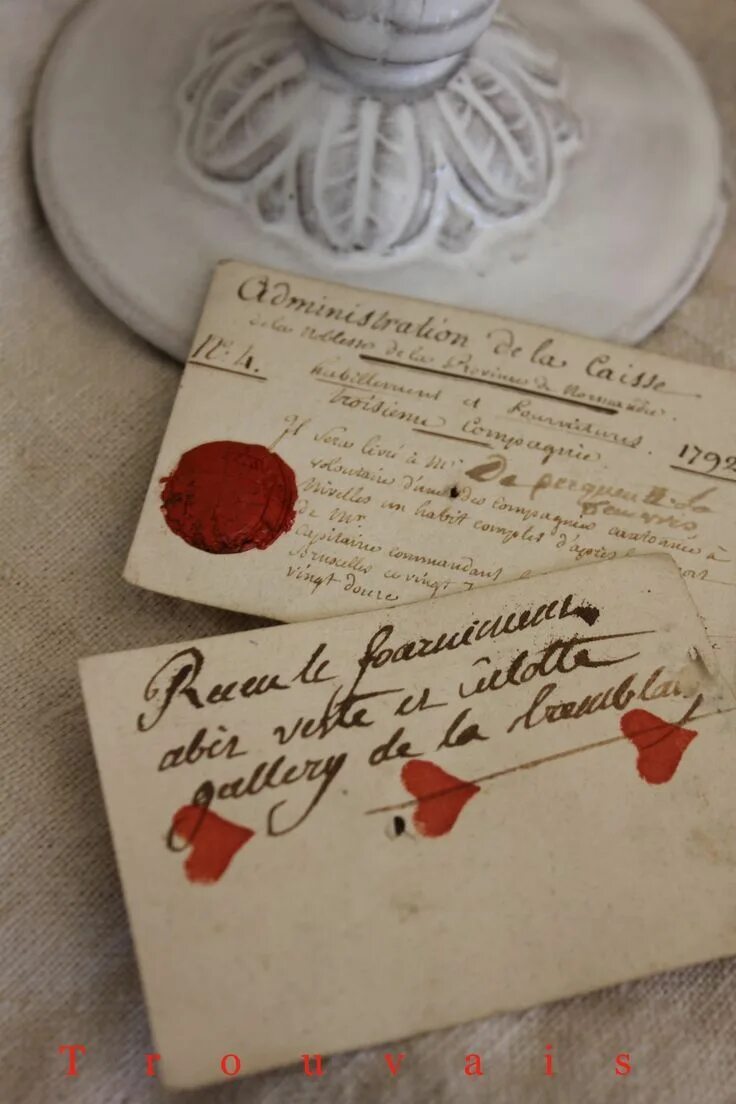 Administration de la Caisse
de la Noblesse de la Province de Normandie.
N.º 4.
habillement et fournitures.
troisieme Compagnie
1792
Il sera livré à Mr
volontaire d'une des compagnies cantonnées à
Nivelles un habit complet d'après le
de Mr
Capitaine commandant
Bruxelles ce vingt
vingt douze
Recu le fourniment
abit veste et culotte
gallery de la tremblais
Trouvais